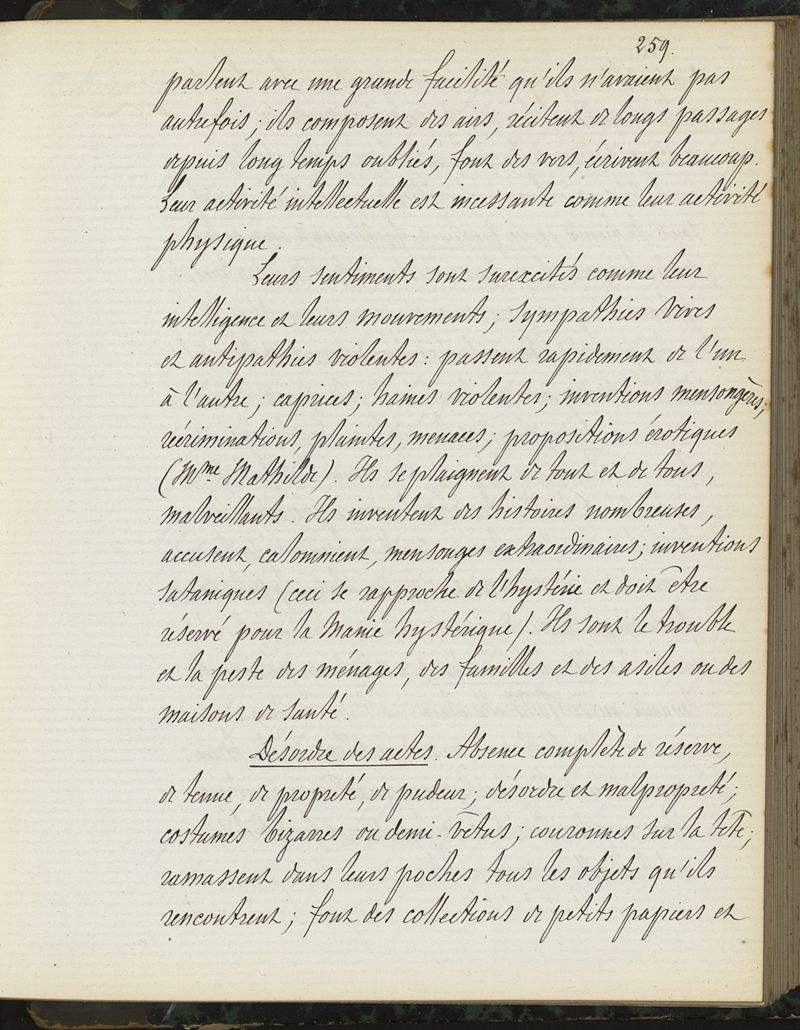 259.
parlent avec une grande facilité qu'ils n'avaient pas
autrefois; ils composent des airs, récitent de longs passages
depuis long temps oubliés, font des vers, écrivent beaucoup.
Leur activité intellectuelle est incessante comme leur activité
physique.
Leurs sentiments sont surexcités comme leur
intelligence et leurs mouvements; sympathies vives
et antipathies violentes: passent rapidement de l'un
à l'autre; caprices; haines violentes; inventions mensongères;
récriminations, plaintes, menaces; propositions érotiques
(Mme Mathilde). Ils se plaignent de tout et de tous,
malveillants. Ils inventent des histoires nombreuses,
accusent, calomnient, mensonges extraordinaires; inventions
sataniques (ceci se rapproche de l'hystérie et doit être
réservé pour la Manie hystérique). Ils sont le trouble
et la peste des ménages, des familles et des asiles ou des
maisons de santé.
Désordre des actes. Absence complète de réserve,
de tenue, de propreté, de pudeur; désordre et malpropreté;
costumes bizarres ou demi-vêtus; couronnes sur la tête;
ramassent dans leurs poches tous les objets qu'ils
rencontrent; font des collections de petits papiers et